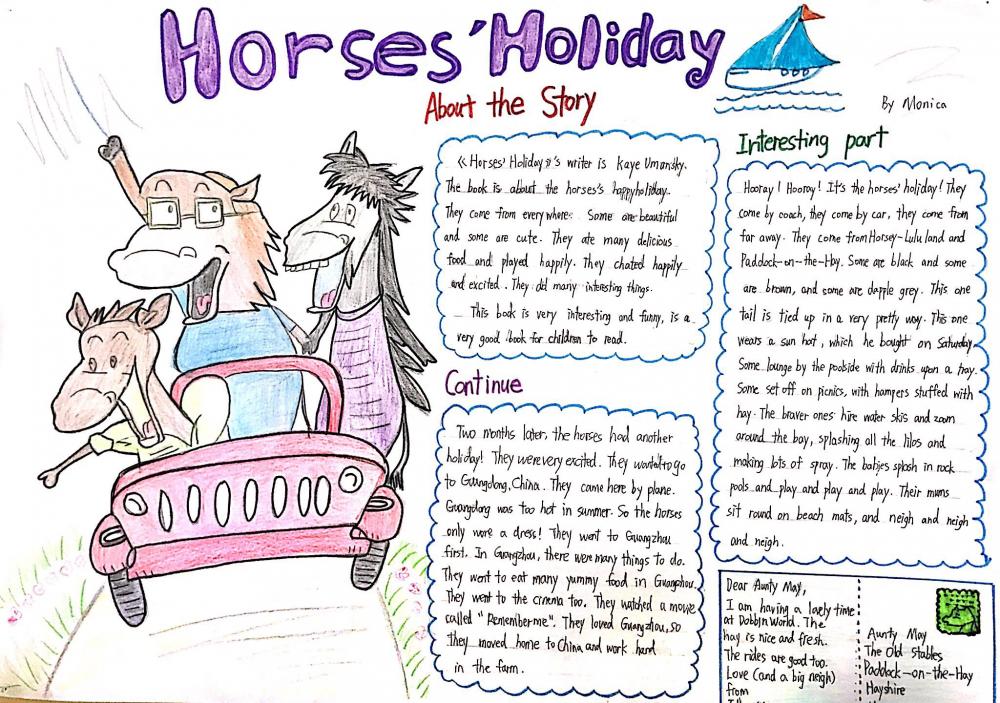 Horses' Holiday
By Monica
About the Story
《Horses' Holiday》's writer is Kaye Umansky.
The book is about the horses's happyholiday.
They come from everywhere. Some are beautiful
and some are cute. They ate many delicious
food and played happily. They chated happily
and excited. They did many interesting things.
This book is very interesting and funny, is a
very good book for children to read.
Continue
Two months later, the horses had another
holiday! They were very excited. They wanted to go
to Guangdong, China. They came here by plane.
Guangdong was too hot in summer. So the horses
only wore a dress! They went to Guangzhou
first. In Guangzhou, there were many things to do.
They went to eat many yummy food in Guangzhou.
They went to the cinema too. They watched a movie
called "Remember me". They loved Guangzhou, so
they moved home to China and work hard
in the farm.
Interesting part
Hooray! Hooray! It's the horses' holiday! They
come by coach, they come by car, they come from
far away. They come from Horsey-Lulu land and
Paddock-on-the-Hay. Some are black and some
are brown, and some are dapple grey. This one
tail is tied up in a very pretty way. This one
wears a sun hat, which he bought on Saturday.
Some lounge by the poolside with drinks upon a tray.
Some set off on picnics, with hampers stuffed with
hay. The braver ones hire water skis and zoom
around the bay, splashing all the lilos and
making lots of spray. The babies splash in rock
pools and play and play and play. Their mums
sit round on beach mats, and neigh and neigh
and neigh.
Dear Aunty May,
I am having a lovely time
at Dobbin World. The
hay is nice and fresh.
The rides are good too.
Love (and a big neigh)
from
Aunty May
The Old Stables
Paddock-on-the-Hay
Hayshire